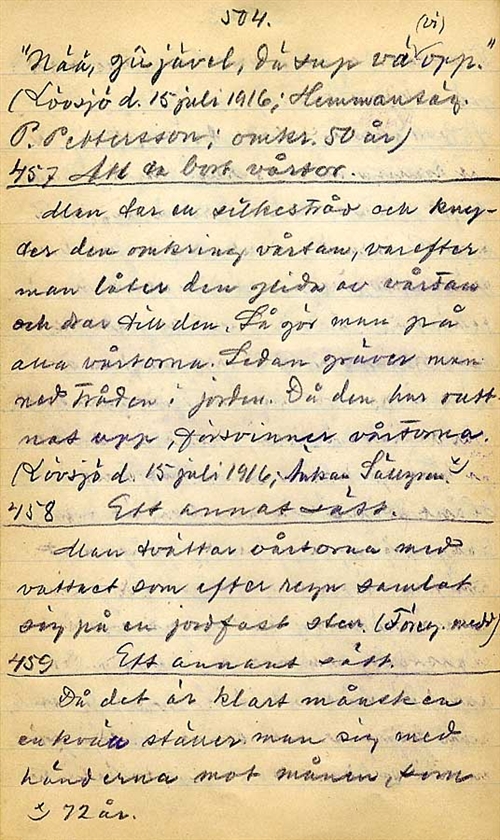 504.
(vi)
"Nää, gu jävel, då sup vå opp."
(Lövsjö d. 15 juli 1916; Hemmansäg.
P. Pettersson; omkr. 50 år)
457 Att ta bort vårtor.
Man tar en silkestråd och kny-
ter den omkring vårtan, varefter
man låter den glida av vårtan
och drar till den. Så gör man på
alla vårtorna. Sedan gräver man
ned tråden i jorden. Då den har rutt-
nat opp, försvinner vårtorna.
(Lövsjö d. 15 juli 1916; Änkan x)
458 Ett annat sätt.
Man tvättar vårtorna med
vattnet som efter regn samlat
sig på en jordfast sten. (Föreg. medd)
459 Ett annant sätt
Då det är klart månsken
en kväll ställer man sig med
händerna mot månen, som
x) 72 år.